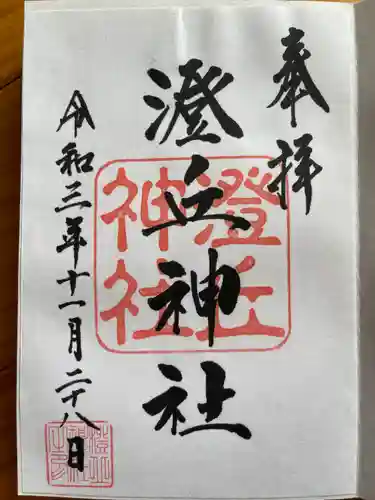 奉拝
澄丘神社
澄丘
神社
令和三年十一月二十八日